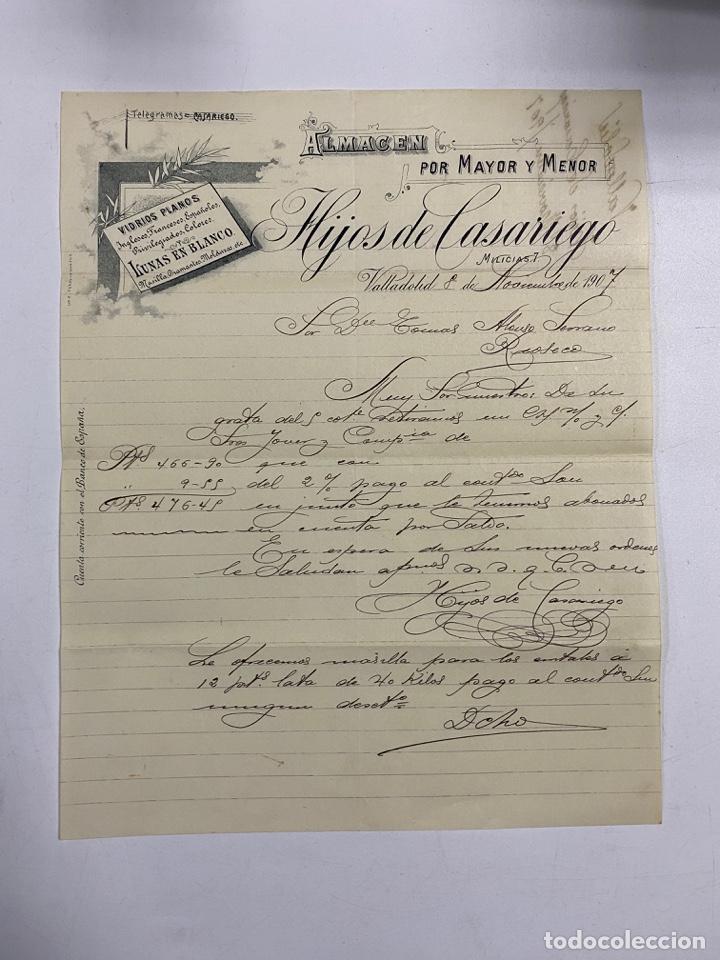 Telegramas= CASARIEGO.
ALMACEN
POR MAYOR Y MENOR
VIDRIOS PLANOS
Ingleses, Franceses, Españoles,
Privilegiados, Colores.
LUNAS EN BLANCO.
Masilla, Diamantes, Molduras, etc
Hijos de Casariego
MILICIAS, 7
Valladolid 8 de Noviembre de 1907
Sor Dn Tomas Alonso Serrano
Rioseco
Muy Sor nuestro: De su
grata del 5 cote retiramos un y
Sres Jover y Compia de
Pts 466-90 que con
" 9-55 del 2% pago al contdo son
Pts 476-45 en junto que le tenemos abonados
en cuenta por Saldo.
En espera de sus nuevas ordenes
le Saludan afmos s. s. q. b. s. m
Hijos de Casariego
Le ofrecemos masilla para los cristales á
12 pts. lata de 40 Kilos pago al contdo Sin
ningun descto
Dcho
Cuenta corriente con el Banco de España.
todocoleccion